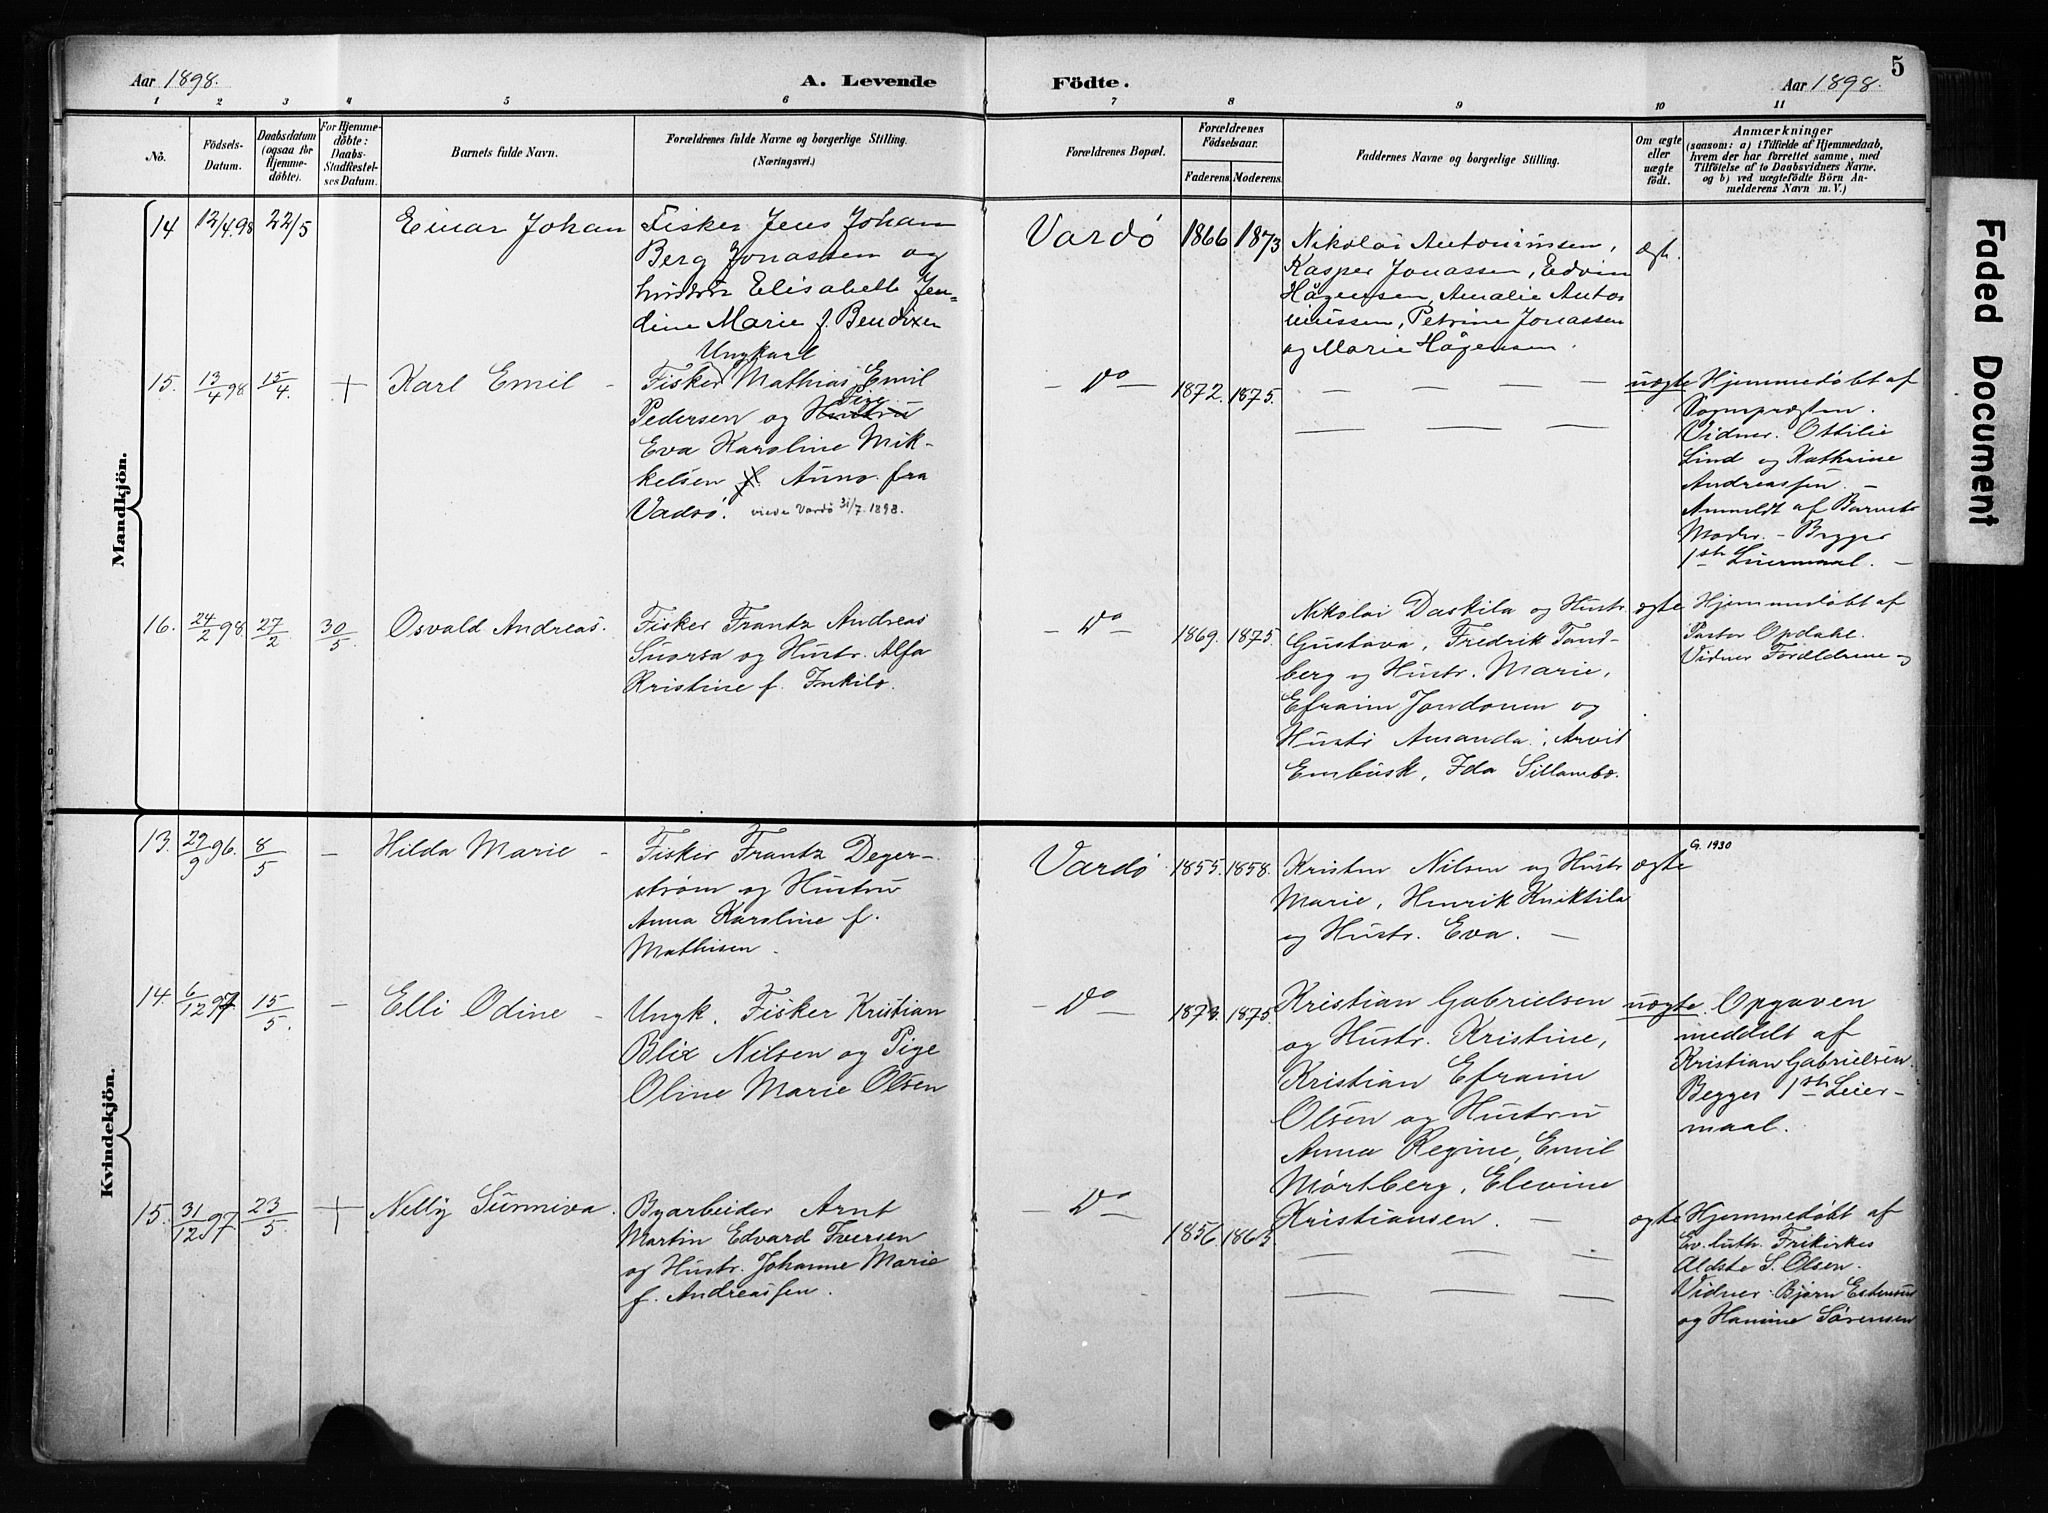 Aar 1898.
A. Levende Födte.
Aar 1898.
5
1 2 3 4 5 6 7 8 9 10 11
No.
Födsels-Datum.
Daabsdatum (ogsaa for Hjemmedöbte).
For Hjemmedöbte: Daabs-Stadfæstelses Datum.
Barnets fulde Navn.
Forældrenes fulde Navne og borgerlige Stilling.
(Næringsvei.)
Forældrenes Bopæl.
Forældrenes Födselsaar.
Faderens. Moderens.
Faddernes Navne og borgerlige Stilling.
Om ægte eller uægte födt.
Anmærkninger
(saasom: a) i Tilfælde af Hjemmedaab,
hvem der har forrettet samme, med
Tilföielse af to Daabsvidners Navne,
og b) ved uægtefödte Börn An-
melderens Navn m. V.)
Mandkjön.
14 12/4.98 22/5
Einar Johan
Fisker Jens Johan
Berg Jonassen og
hustru Elisabeth Jen-
dine Marie f. Bendixen
Vardö
1866 1873
Nikolai Antoniusen,
Kasper Jonassen, Edvin
Hågensen, Amalie Anto-
niussen, Petrine Jonassen
og Marie Hågensen.
ægte.
15. 13/4 98 15/4. +
Karl Emil -
Ungkarl
Fisker Mathias Emil
Pige
Pedersen og Hustru
Eva Karoline Mik-
kelsen f. Auno. fra
Vadsö. viede Vardö 31/7. 1898.
- Do -
1872. 1875.
uægte
Hjemmedöbt af
Sognepræsten.
Vidner. Ottilie
Lind og Kathrine
Andreassen. -
Anmeldt af Barnets
Moder. - Begges
1ste Leiermaal. -
16. 24/2 98. 27/2 30/5.
Osvald Andreas.
Fisker Frantz Andreas
Suorsa og Hustr. Alfa
Kristine f. Inkilo.
- Do -
1869. 1875.
Nikolai Daskila og Hustr.
Gustava, Fredrik Tand-
berg og Hustr. Marie,
Efraim Jondonen og
Hustr Amanda, Arvid
Embusk, Ida Sillambo.
ægte
Hjemmedöbt af
Pastor Opdahl.
Vidner Forældrene
Kvindekjön.
13. 29/9 96. 8/5 -
Hilda Marie -
Fisker Frantz Deger-
ström og Hustru
Anna Karoline f.
Mathisen.
Vardö
1855. 1858.
Kristen Nilsen og Hustr
Marie, Henrik Kniktila
og Hustr. Eva. -
ægte
G. 1930
14. 6/12 97 15/5. -
Elli Odine -
Ungk. Fisker Kristian
Blix Nilsen og Pige
Oline Marie Olsen
- Do -
1873. 1875.
Kristian Gabrielsen
og Hustr. Kristine,
Kristian Efraim
Olsen og Hustru
Anna Regine, Emil
Mörtberg, Elevine
Kristiansen. -
uægte.
Opgaven
meddelt af
Kristian Gabrielsen.
Begges 1ste Leier-
maal.
15. 31/12 97 23/5. +
Nelly Sunniva.
Byarbeider Arnt
Martin Edvard Iversen
og Hustr. Johanne Marie
f. Andreassen.
- Do -
1856. 1865.
ægte
Hjemmedöbt af
Ev. luth. Frikirkes
Ældste S. Olsen.
Vidner. Bjørn Estensen
og Hanine Sørensen
Faded Document